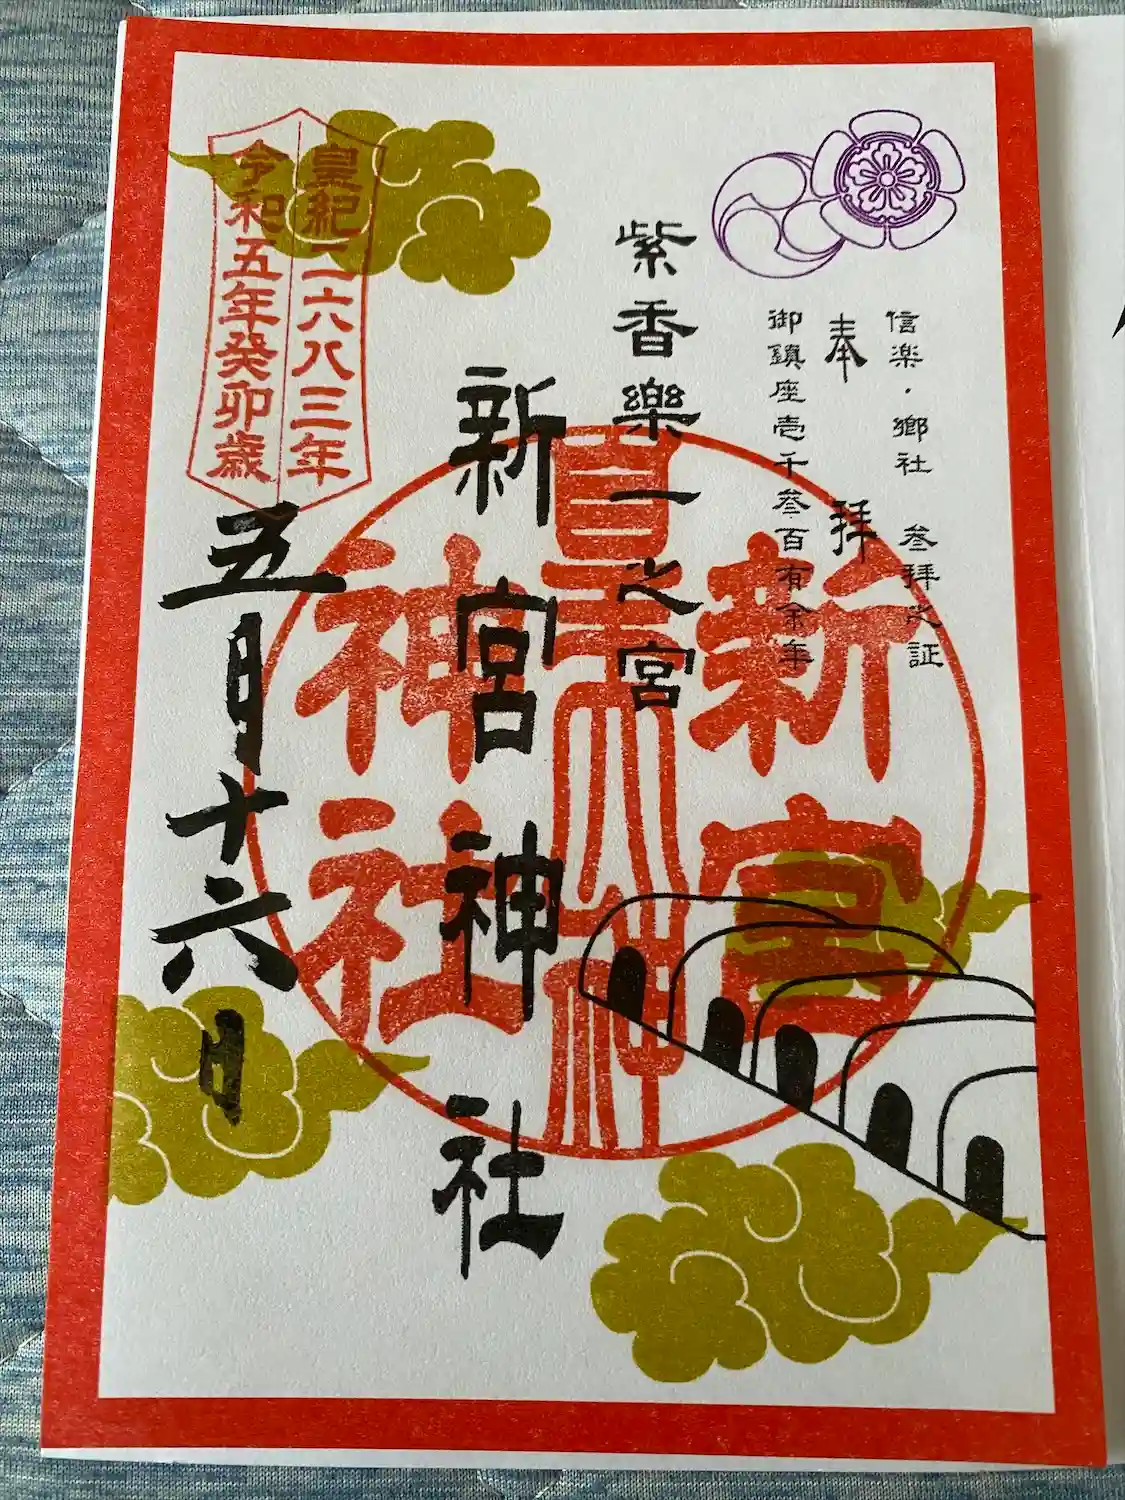 信楽・郷社 叁拝之証
奉拝
御鎮座壱千叁百有余年
紫香樂一之宮
新宮神社
新宮
神社
皇紀二六八三年
令和五年癸卯歳
五月十六日